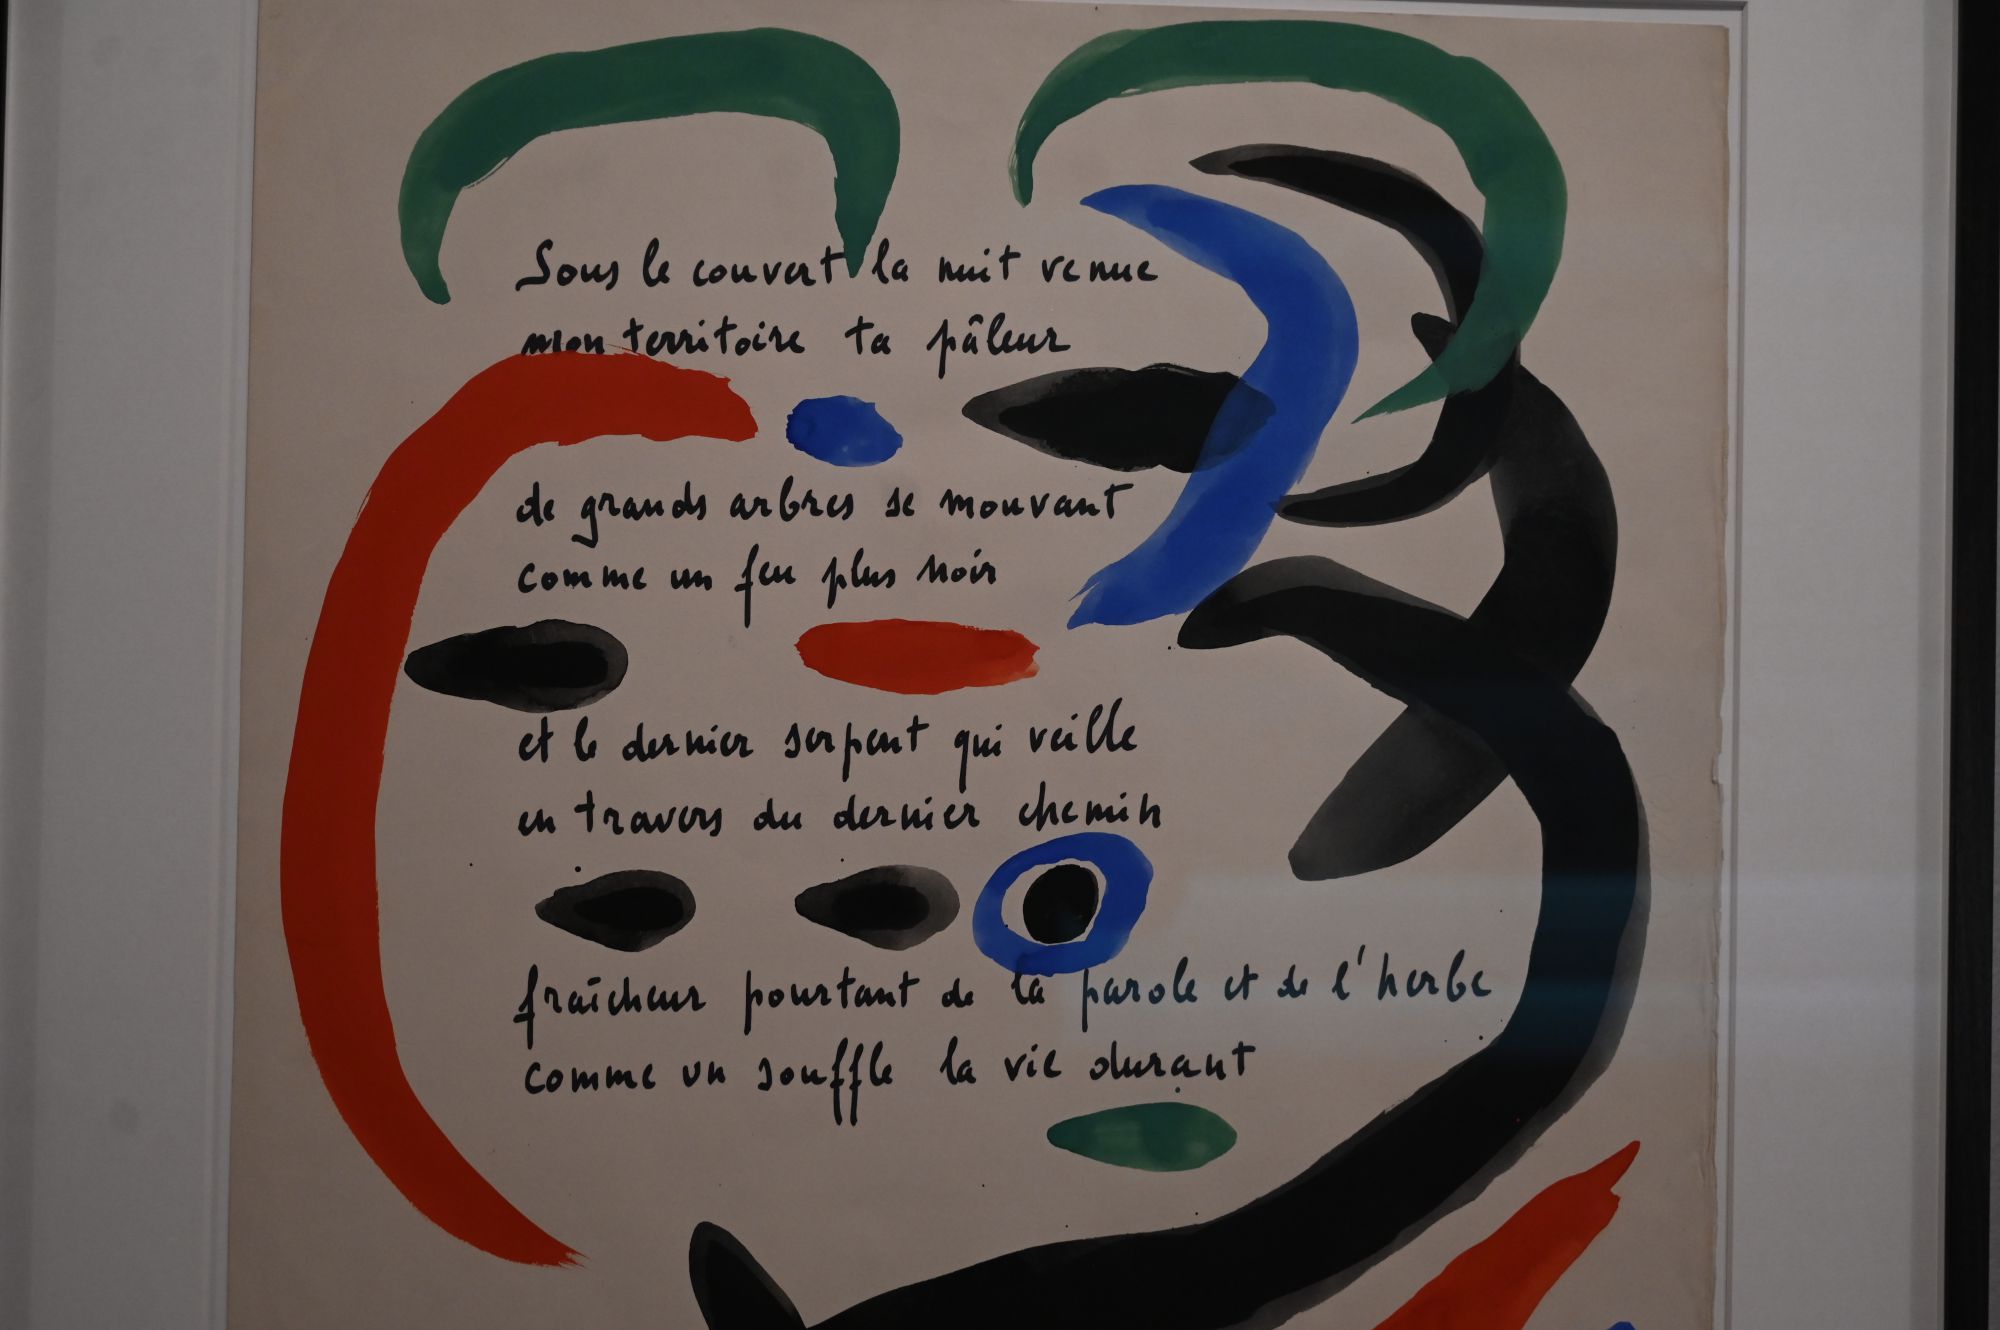 Sous le couvert la nuit venue
mon territoire ta pâleur
de grands arbres se mouvant
comme un feu plus noir
et le dernier serpent qui veille
en travers du dernier chemin
fraîcheur pourtant de la parole et de l'herbe
comme un souffle la vie durant